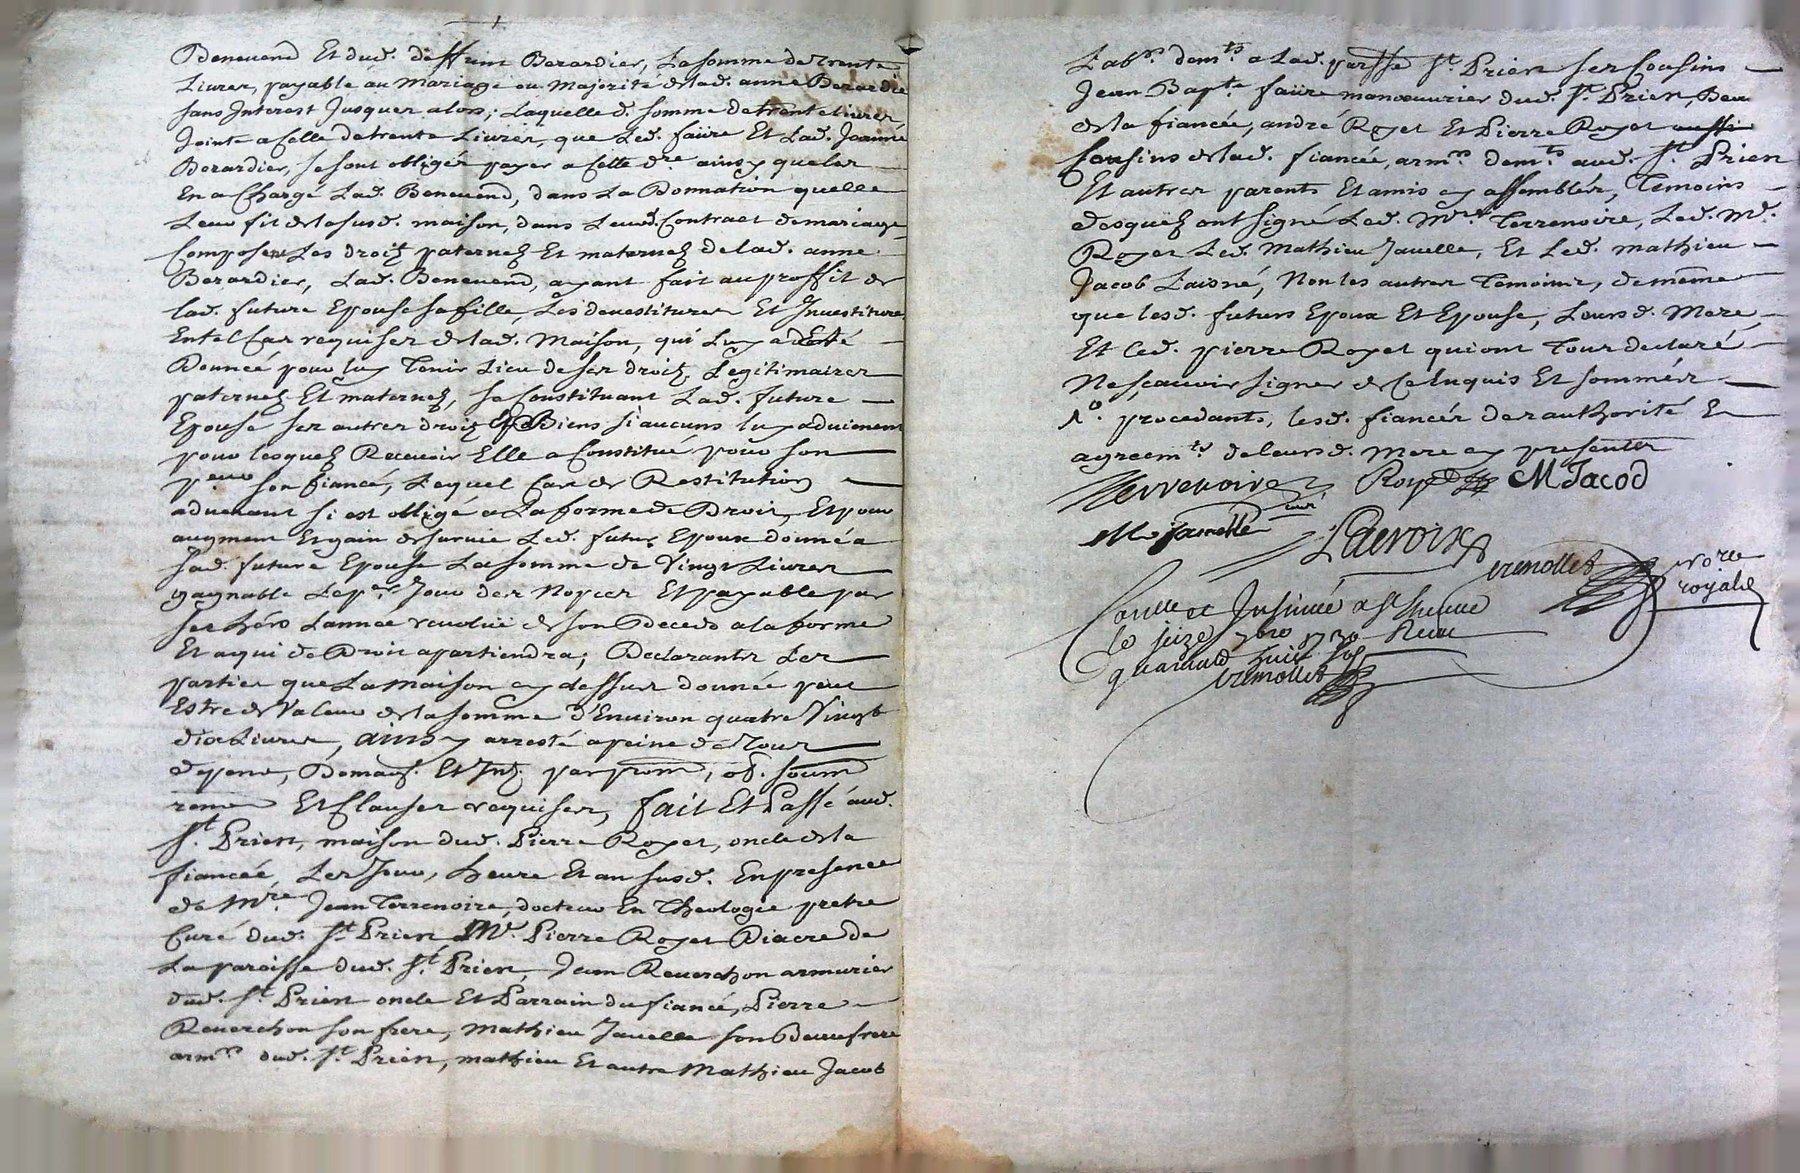 Beneuend Et dud. deffunt Berardier, La somme de trente
Livres, payable au Mariage ou Majorité de lad. anne Berardier
sans Interest Jusques alors; Laquelle d. somme de trente Livres,
Jointe a Celle de trente Livres, que Led. faure Et Lad. Jeanne
Berardier, se sont obligés payer a Celle d.re ainsy que les
En a Chargé Lad. Beneuend, dans La Donnation quelle
Leur fit de la susd. maison, dans Leurd. Contract de mariage
Composent Les droitz paternelz Et maternelz de lad. anne
Berardier, Lad. Beneuend, ayant fait au proffit de
lad. future Epouse sa fille, Les deuestitures Et Inuestitures
En tel Cas requises de lad. Maison, qui Luy a Esté
Donnée pour luy Tenir Lieu de ses droitz Legitimaires
paternelz Et maternelz, se Constituant Lad. future
Epouse ses autres droitz Et Biens si aucuns luy aduienent
pour lesquelz Receuoir Elle a Constitué pour son
p.eur son fiancé, Lequel Cas de Restitution
aduenant s'est obligé a La forme de Droit, Et pour
augment Et gain de suruie Led. futur Epoux donné a
sad. future Epouse La somme de Vingt Liures
gagnable Le p.er Jour des Nopces Et payable par
ses hers Lannee reuolue de son Deceds a la forme
Et a qui de Droit apartiendra; Declarants Les
parties que La maison cy dessus donnée peut
Estre de Valeur de la somme d'Enuiron quatre Vingt
dix Liures, ainsy arresté a peine de Tous
depens, Domag. Et Int. par prom, ob. soum
renon Et Clauses requises, fait Et Passé aud.
St. Prien, maison dud. Pierre Royet, oncle de la
fiancée, Les Jour, heure Et an susd. En presence
de Mre. Jean Terrenoire, docteur En Theologie pretre
Curé dud. St. Prien Mr. Pierre Royet Diacre de
La paroisse dud. St. Prien, Jean Reuerchon armurier
dud. St. Prien oncle Et Parrain du fiancé, Pierre
Reuerchon son frere, Mathieu Jauelle son Beaufrere
arm.rs dud. St. Prien, mathieu Et autre Mathieu Jacob
Lab.rs dem.ts a Lad. parsse St. Prien ses Cousins
Jean Bap.te faure manoeuurier dud. St. Prien, Beau
de la fiancée, andré Royet Et Pierre Royet aussi
Cousins de lad. fiancée, arm.rs dem.ts aud. St. Prien
Et autres parents Et amis cy assemblés, Temoins
desquelz ont signé Led. Mre. Terrenoire, Led. Mr.
Royet Led. Mathieu Jauelle, Et Led. mathieu
Jacob Laisné, Non les autres Temoins, de mesme
que lesd. futurs Epoux Et Epouse, Leurs d. Mere,
Et Led. pierre Royet qui ont Tous declaré
Ne sçauoir signer de Ce Enquis Et sommés
procedants, lesd. fiancés de l'authorité Et
agreem.ts de leurs d. Mere cy presentes
Terrenoire curé Royet MJacod
M Jauelle Lacroix
cremollet no.re royale
Conllé et Insinué a St Etienne
le seize 7bre 1730 Receu
quarante huit sols
cremollet